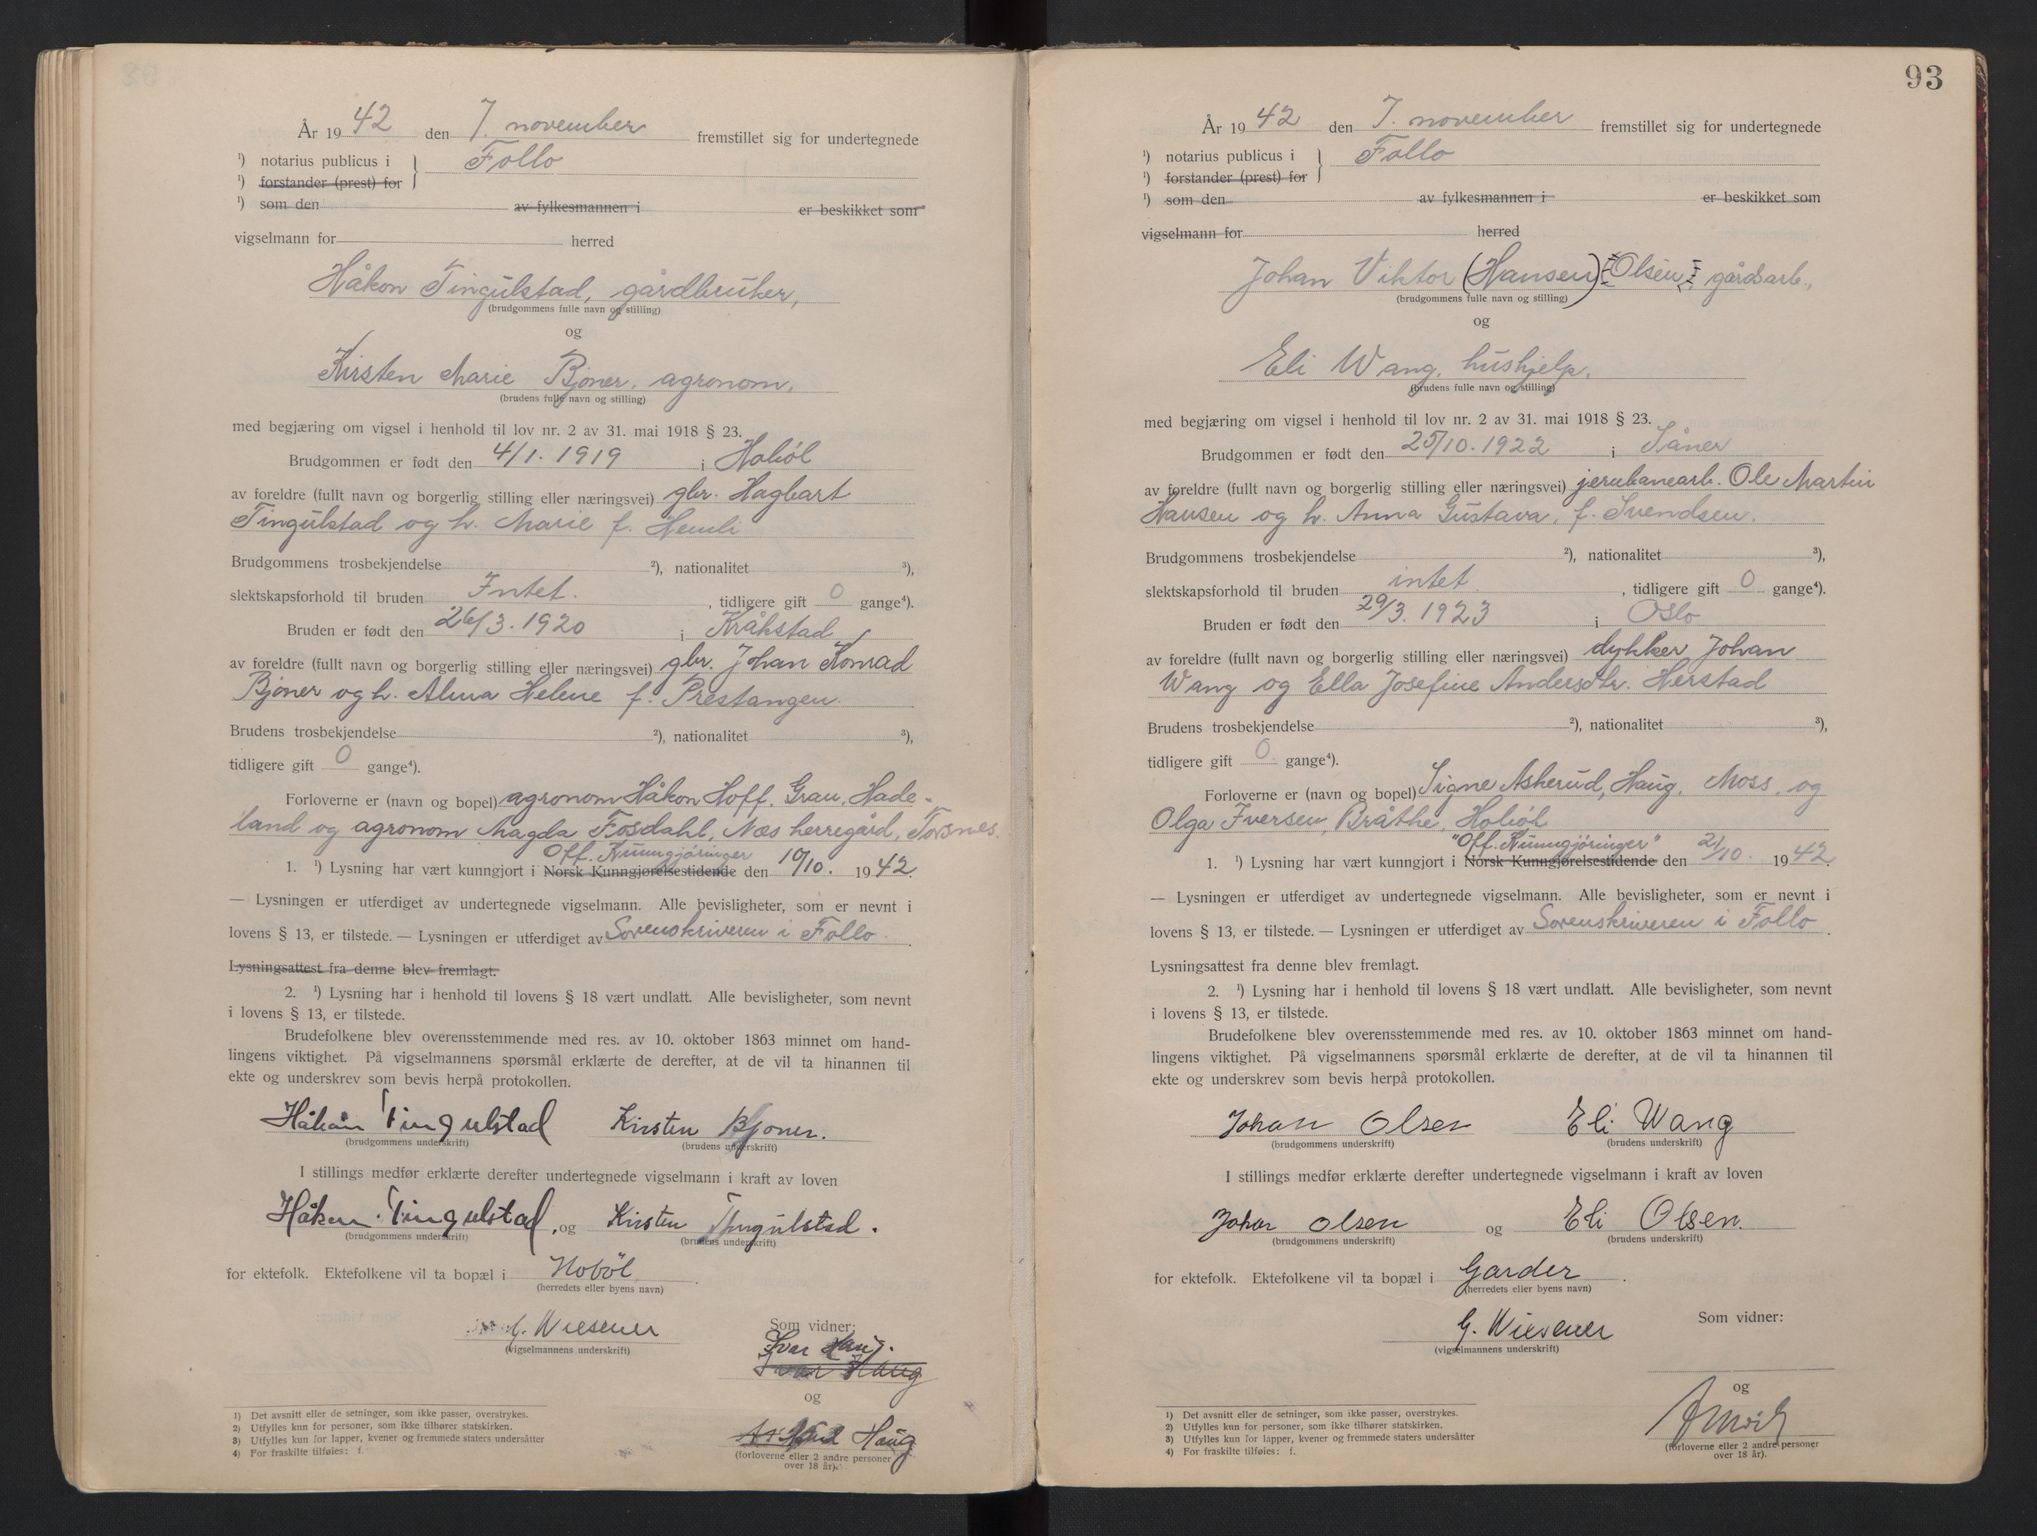 År 1942 den 7. november fremstillet sig for undertegnede
¹) notarius publicus i } Follo
¹) forstander (prest) for
¹) som den av fylkesmannen i er beskikket som
vigselmann for herred
Håkon Tingulstad, gårdbruker,
(brudgommens fulle navn og stilling)
og
Kirsten Marie Bjöner, agronom,
(brudens fulle navn og stilling)
med begjæring om vigsel i henhold til lov nr. 2 av 31. mai 1918 § 23.
Brudgommen er født den 4/1. 1919 i Hobøl
av foreldre (fullt navn og borgerlig stilling eller næringsvei) gbr. Hagbart
Tingulstad og h. Marie f. Hemli
Brudgommens trosbekjendelse ²), nationalitet ³),
slektskapsforhold til bruden Intet. , tidligere gift 0 gange⁴).
Bruden er født den 26/3. 1920 i Kråkstad
av foreldre (fullt navn og borgerlig stilling eller næringsvei) gbr. Johan Konrad
Bjöner og h. Alma Helene f. Prestangen.
Brudens trosbekjendelse ²), nationalitet ³),
tidligere gift 0 gange⁴).
Forloverne er (navn og bopel) agronom Håkon Hoff, Gran, Hade-
land og agronom Magda Fosdahl, Næs herregård, Torsnes.
Off. Kunngjöringer
1. ¹) Lysning har vært kunngjort i Norsk Kunngjørelsestidende den 10/10. 1942.
— Lysningen er utferdiget av undertegnede vigselmann. Alle bevisligheter, som er nevnt i
lovens § 13, er tilstede. — Lysningen er utferdiget av Sorenskriveren i Follo.
Lysningsattest fra denne blev fremlagt.
2. ¹) Lysning har i henhold til lovens § 18 vært undlatt. Alle bevisligheter, som nevnt
i lovens § 13, er tilstede.
Brudefolkene blev overensstemmende med res. av 10. oktober 1863 minnet om hand-
lingens viktighet. På vigselmannens spørsmål erklærte de derefter, at de vil ta hinannen til
ekte og underskrev som bevis herpå protokollen.
Håkon Tingulstad Kirsten Bjoner.
(brudgommens underskrift) (brudens underskrift)
I stillings medfør erklærte derefter undertegnede vigselmann i kraft av loven
Håkon Tingulstad, og Kirsten Tingulstad.
(brudgommens underskrift) (brudens underskrift)
for ektefolk. Ektefolkene vil ta bopæl i Hobøl
(herredets eller byens navn)
Som vidner:
G. Wiesener
(vigselmannens underskrift)
Ivar Haug.
Ivar Haug
og
Haug
(forloverne eller 2 andre personer
over 18 år).
1) Det avsnitt eller de setninger, som ikke passer, overstrykes.
2) Utfylles kun for personer, som ikke tilhører statskirken.
3) Utfylles kun for lapper, kvener og fremmede staters undersåtter
4) For fraskilte tilføies: f.
93
År 1942 den 7. november fremstillet sig for undertegnede
¹) notarius publicus i } Follo
¹) forstander (prest) for
¹) som den av fylkesmannen i er beskikket som
vigselmann for herred
Johan Viktor (Hansen) Olsen, gårdsarb.,
(brudgommens fulle navn og stilling)
og
Eli Wang, hushjelp.
(brudens fulle navn og stilling)
med begjæring om vigsel i henhold til lov nr. 2 av 31. mai 1918 § 23.
Brudgommen er født den 25/10. 1922 i Såner
av foreldre (fullt navn og borgerlig stilling eller næringsvei) jernbanearb. Ole Martin
Hansen og h. Anna Gustava, f. Svendsen.
Brudgommens trosbekjendelse ²), nationalitet ³),
slektskapsforhold til bruden intet. , tidligere gift 0 gange⁴).
Bruden er født den 29/3. 1923 i Oslo
av foreldre (fullt navn og borgerlig stilling eller næringsvei) dykker Johan
Wang og Ella Josefine Andersdtr. Herstad
Brudens trosbekjendelse ²), nationalitet ³),
tidligere gift 0. gange⁴).
Forloverne er (navn og bopel) Signe Askerud, Haug, Moss, og
Olga Iversen, Bråthe, Hobøl
"Off. Kunngjöringer"
1. ¹) Lysning har vært kunngjort i Norsk Kunngjørelsestidende den 21/10. 1942.
— Lysningen er utferdiget av undertegnede vigselmann. Alle bevisligheter, som er nevnt i
lovens § 13, er tilstede. — Lysningen er utferdiget av Sorenskriveren i Follo.
Lysningsattest fra denne blev fremlagt.
2. ¹) Lysning har i henhold til lovens § 18 vært undlatt. Alle bevisligheter, som nevnt
i lovens § 13, er tilstede.
Brudefolkene blev overensstemmende med res. av 10. oktober 1863 minnet om hand-
lingens viktighet. På vigselmannens spørsmål erklærte de derefter, at de vil ta hinannen til
ekte og underskrev som bevis herpå protokollen.
Johan Olsen Eli Wang
(brudgommens underskrift) (brudens underskrift)
I stillings medfør erklærte derefter undertegnede vigselmann i kraft av loven
Johan Olsen og Eli Olsen.
(brudgommens underskrift) (brudens underskrift)
for ektefolk. Ektefolkene vil ta bopæl i Garder.
(herredets eller byens navn)
Som vidner:
G. Wiesener
(vigselmannens underskrift)
og
(forloverne eller 2 andre personer
over 18 år).
1) Det avsnitt eller de setninger, som ikke passer, overstrykes.
2) Utfylles kun for personer, som ikke tilhører statskirken.
3) Utfylles kun for lapper, kvener og fremmede staters undersåtter
4) For fraskilte tilføies: f.